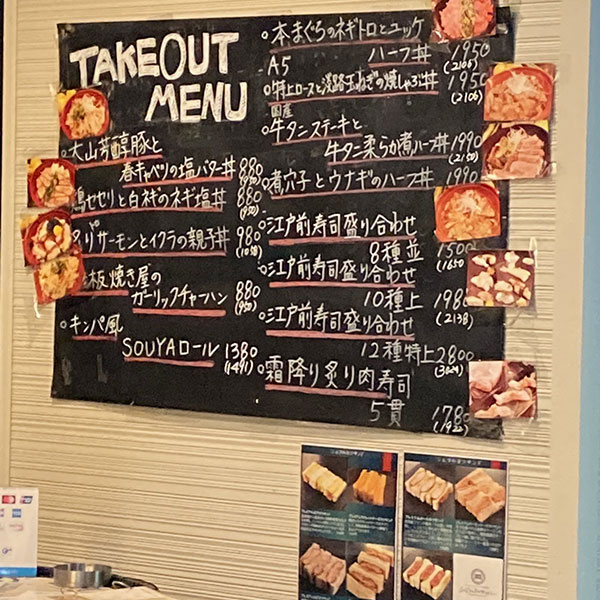 TAKEOUT
MENU
大山芳醇豚と
春キャベツの塩バター丼 880
鴨せせりと白ネギのネギ塩丼 880
炙りサーモンとイクラの親子丼 980
鉄板焼き屋の
ガーリックチャーハン 880
キンパ風
SOUYAロール 1380
本まぐろのネギトロとユッケ
ハーフ丼 1950
A5 (2106)
特上ロースと淡路玉ねぎの焼しゃぶ丼 1950
国産 (2106)
牛タンステーキと、
牛タン柔らか煮ハーフ丼 1990
煮穴子とウナギのハーフ丼 1990
江戸前寿司盛り合わせ
8種並 1500
江戸前寿司盛り合わせ
10種上 1980
(2138)
江戸前寿司盛り合わせ
12種特上 2800
(3024)
霜降り炙り肉寿司
5貫 1780
(1922)